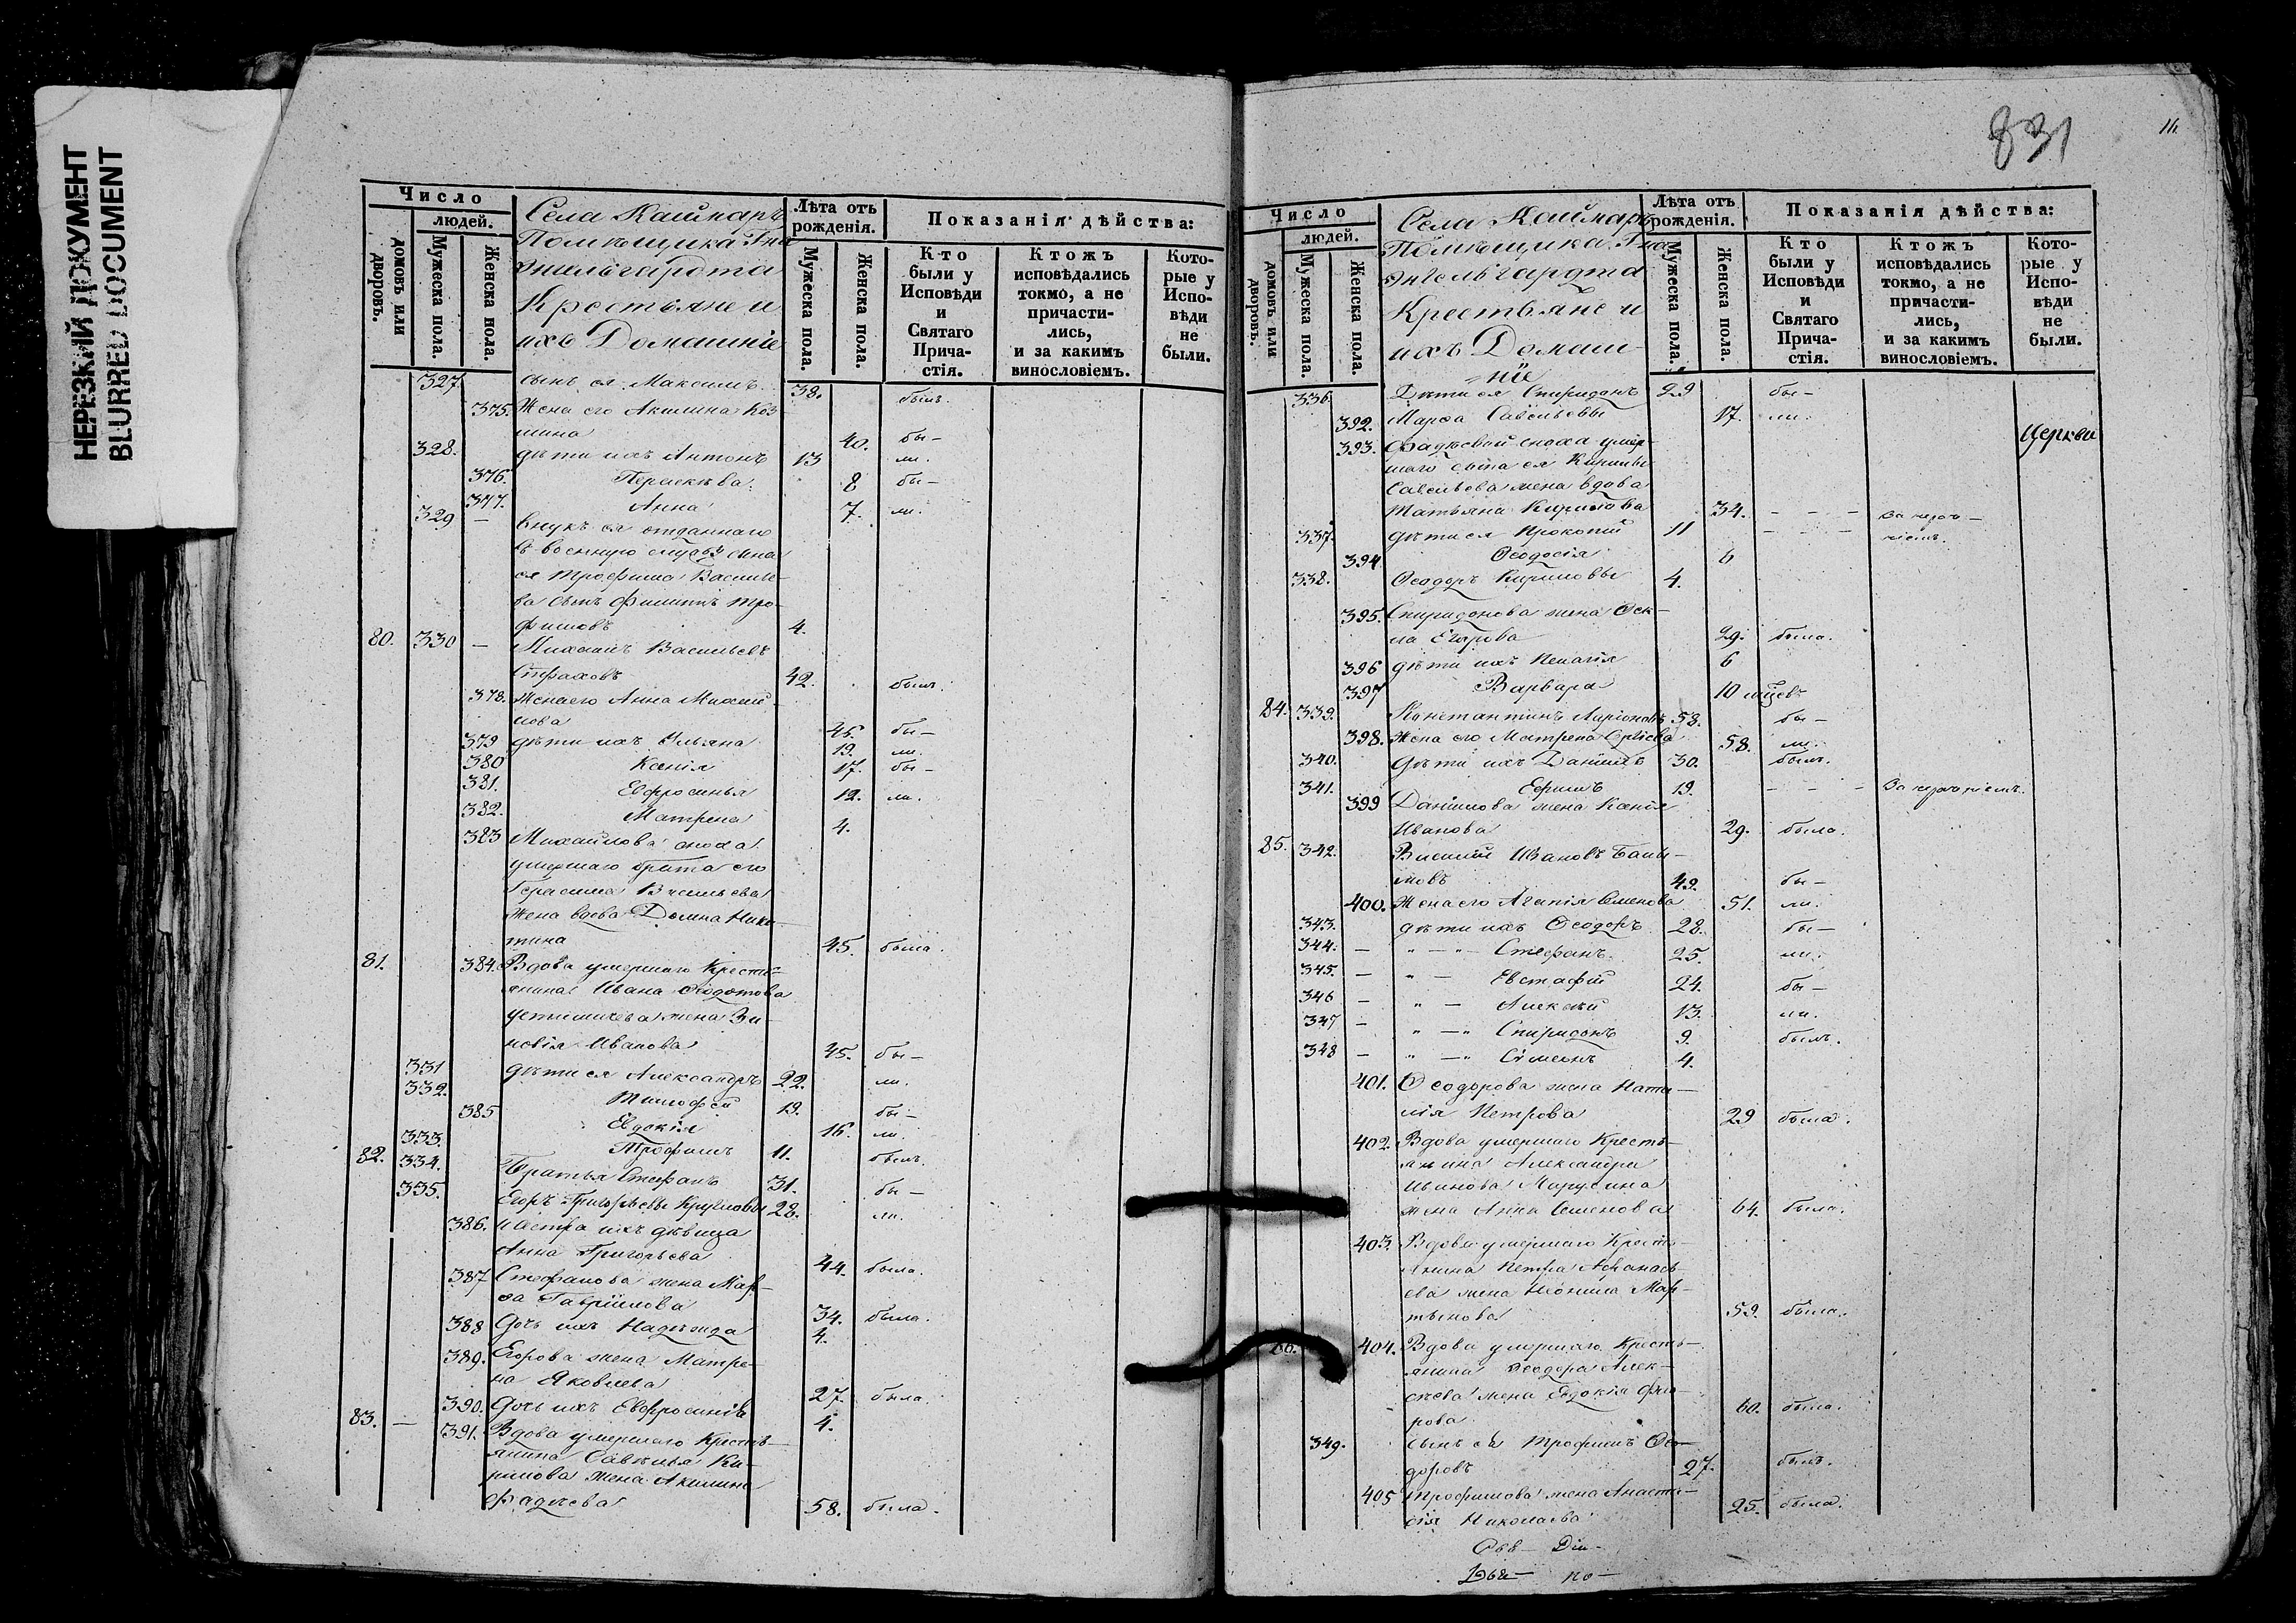 НЕРЕЗКИЙ ДОКУМЕНТ
BLURRED DOCUMENT
Число
людей.
домовъ или дворовъ.
Мужеска пола.
Женска пола.
Села Каймаръ
Помѣщика Гна
Энгельгардта
Крестьяне и
ихъ Домашніе
Лѣта отъ рожденія.
Мужеска пола.
Женска пола.
Показанія дѣйства:
Кто были у Исповѣди и Святаго Причастія.
Ктожъ исповѣдались токмо, а не причастились, и за какимъ винословіемъ.
Которые у Исповѣди не были.
327. сынъ ея Максимъ 38. былъ.
375. Жена его Акилина Коз
мина 40. бы-
328. дѣти ихъ Антонъ 13 ли.
376. Параскѣва 8 бы-
377. Анна 7. ли.
329 - внукъ ея отданнаго
въ военную службу сына
ея Трофима Василье-
ва сынъ Филиппъ Тро-
фимовъ 4.
80. 330 - Михаилъ Васильевъ
Страховъ 42. былъ.
378. Жена его Анна Михай
лова 45. бы-
379 дѣти ихъ Ульяна 19. ли.
380 Ксенія 17. бы-
381. Евфросинья 12. ли.
382. Матрена 4.
383 Михайлова сноха
умершаго брата его
Герасима Васильева
жена вдова Домна Ники-
тина 45. была.
81. 384. Вдова умершаго Кресть-
янина Ивана Ѳедотова
жена Зи-
новія Иванова 45. бы-
331 дѣти ея Александръ 22. ли.
332. Тимофей 19. бы-
385 Евдокія 16. ли.
333. Трофимъ 11. былъ.
82. 334. Братья Стефанъ 31. бы-
335. Егоръ Григорьевы Кругловы 28. ли.
386. Сестра ихъ дѣвица
Анна Григорьева 44. была.
387 Стефанова жена Мар-
ѳа Гаврилова 34. была.
388 Дочь ихъ Надежда 4.
389. Егорова жена Матре-
на Яковлева 27. была.
390. Дочь ихъ Евфросинія 4.
83. - 391. Вдова умершаго Кресть-
янина Савелья Ки-
рилова жена Акилина
Фадѣева 58. была.
831
16
Число
людей.
домовъ или дворовъ.
Мужеска пола.
Женска пола.
Села Каймаръ
Помѣщика Гна
Энгельгардта
Крестьяне и
ихъ Домаш-
ніе
Лѣта отъ рожденія.
Мужеска пола.
Женска пола.
Показанія дѣйства:
Кто были у Исповѣди и Святаго Причастія.
Ктожъ исповѣдались токмо, а не причастились, и за какимъ винословіемъ.
Которые у Исповѣди не были.
336. Дѣти ея Спиридонъ 29 бы-
392. Марѳа Савельевы 17. ли.
Церкви
393. Фадѣевой сноха умер-
шаго сына ея Кирилы
Савельева жена вдова
Татьяна Кирилова 34. - - - За нерач-
337. дѣти ея Прокопій 11 - - - ніемъ.
394 Ѳеодосія 6
338. Ѳеодоръ Кириловы 4.
395. Спиридонова жена Ѳек-
ла Егорова 29. была.
396 дѣти ихъ Пелагія 6
397 Варвара 10 мѣсев
84. 339. Константинъ Ларіоновъ 58. бы-
398. Жена его Матрена 58. ли.
340. Дѣти ихъ Даніилъ 30. былъ.
341. Ефимъ 19. - - - За нераченіемъ.
399 Даніилова жена Ксенія
Иванова 29. была.
85. 342. Василій Ивановъ
49. бы-
400. Жена его Агапія Семенова 51. ли.
343. дѣти ихъ Ѳеодоръ 28. бы-
344. - Стефанъ 25. ли.
345. - Евстафій 24. бы-
346 - Алексѣй 13. ли.
347 - Спиридонъ 9. былъ.
348 - Симеонъ 4.
401. Ѳеодорова жена Ната-
лія Петрова 29 была.
402. Вдова умершаго Кресть-
янина Александра
Иванова Марусина
жена Анна Семенова 64. была.
403. Вдова умершаго Кресть-
янина Петра Афанась-
ева жена Неонила Мар-
тынова 59. была.
86. 404. Вдова умершаго Кресть-
янина Ѳеодора Алек-
сѣева жена Евдокія Фло-
рова 60. была.
349. сынъ ея Трофимъ Ѳео-
доровъ 27. былъ.
405 Трофимова жена Анаста-
сія Николаева 25. была.